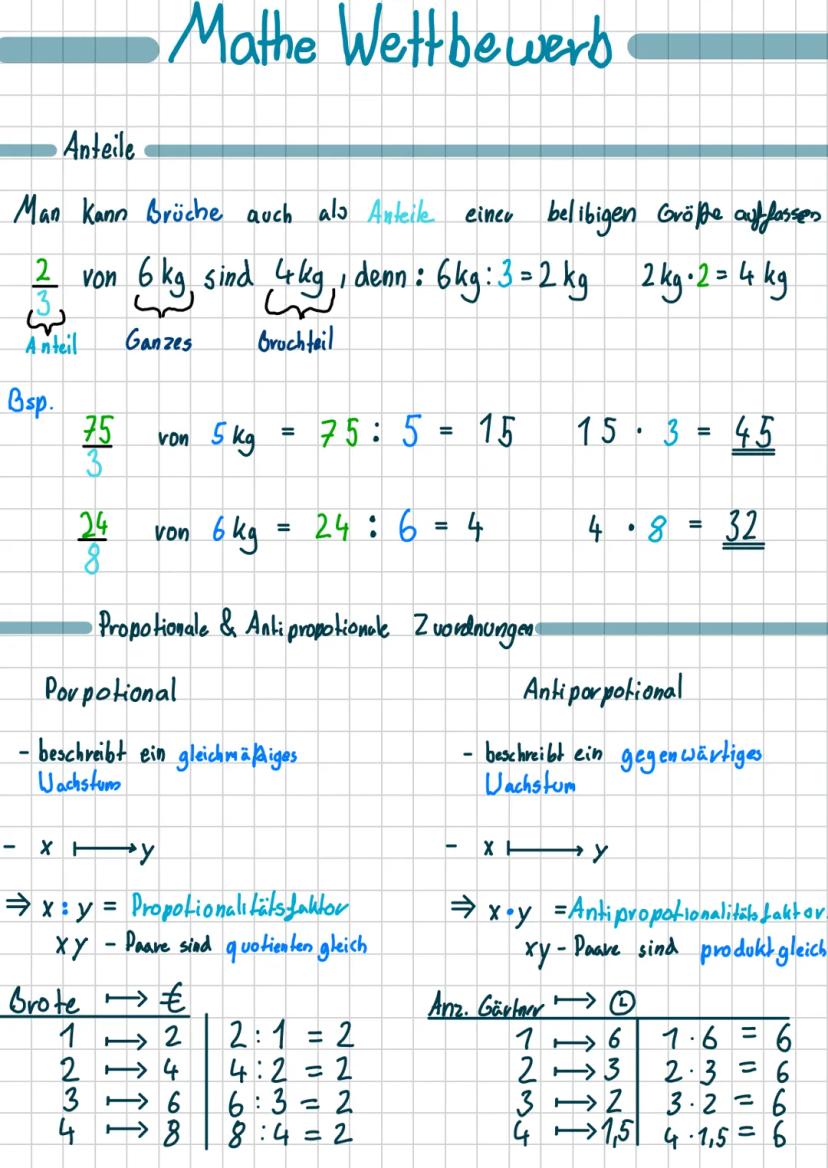 Mathe Wettbewerb
Anteile
Man kann Brüche auch als Anteile einer belibigen Größe auffassen
2/3 von 6 kg sind 4 kg, denn: 6 kg : 3 = 2 kg 2 kg · 2 = 4 kg
Anteil Ganzes Bruchteil
Bsp.
75/3 von 5 kg = 75 : 5 = 15 15 · 3 = 45
24/8 von 6 kg = 24 : 6 = 4 4 · 8 = 32
Propotionale & Antipropotionale Zuordnungen
Porpotional
- beschreibt ein gleichmäßiges
Wachstum
- x ↦ y
⇒ x : y = Propotionalitätsfaktor
xy - Paare sind quotienten gleich
Brote ↦ €
1 ↦ 2 | 2 : 1 = 2
2 ↦ 4 | 4 : 2 = 2
3 ↦ 6 | 6 : 3 = 2
4 ↦ 8 | 8 : 4 = 2
Antiporpotional
- beschreibt ein gegenwärtiges
Wachstum
- x ↦ y
⇒ x · y = Antipropotionalitätsfaktor
xy - Paare sind produkt gleich
Anz. Gärtner ↦ 🕒
1 ↦ 6 | 1 · 6 = 6
2 ↦ 3 | 2 · 3 = 6
3 ↦ 2 | 3 · 2 = 6
4 ↦ 1,5 | 4 · 1,5 = 6